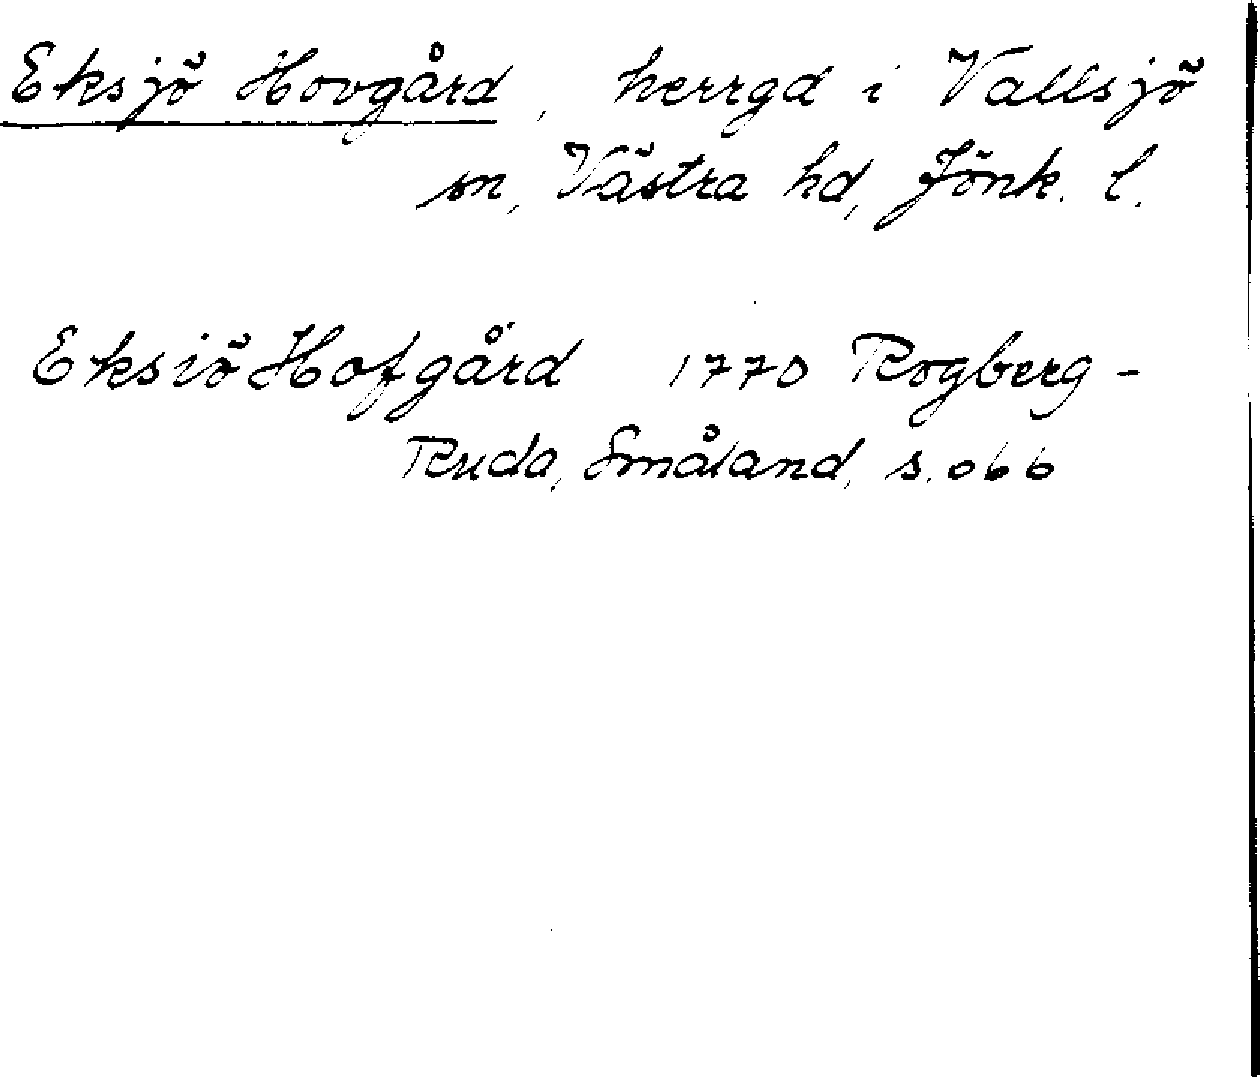 Eksjö Hovgård, herrgd i Vallsjö
sn, Västra hd, Jönk. l.
Eksiö Hofgård 1770 Rogberg-
Ruda, Småland, s. 066